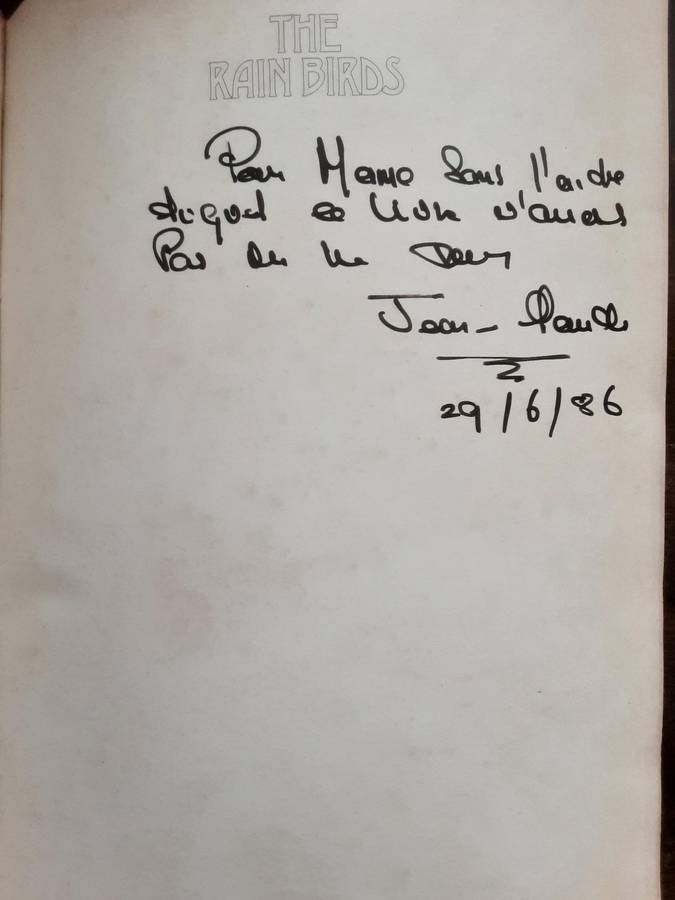 THE
RAIN BIRDS
Pour Mame Sans l'aide
duquel ce livre n'aurais
Pas vu le Jour
Jean-Claude
29/6/86